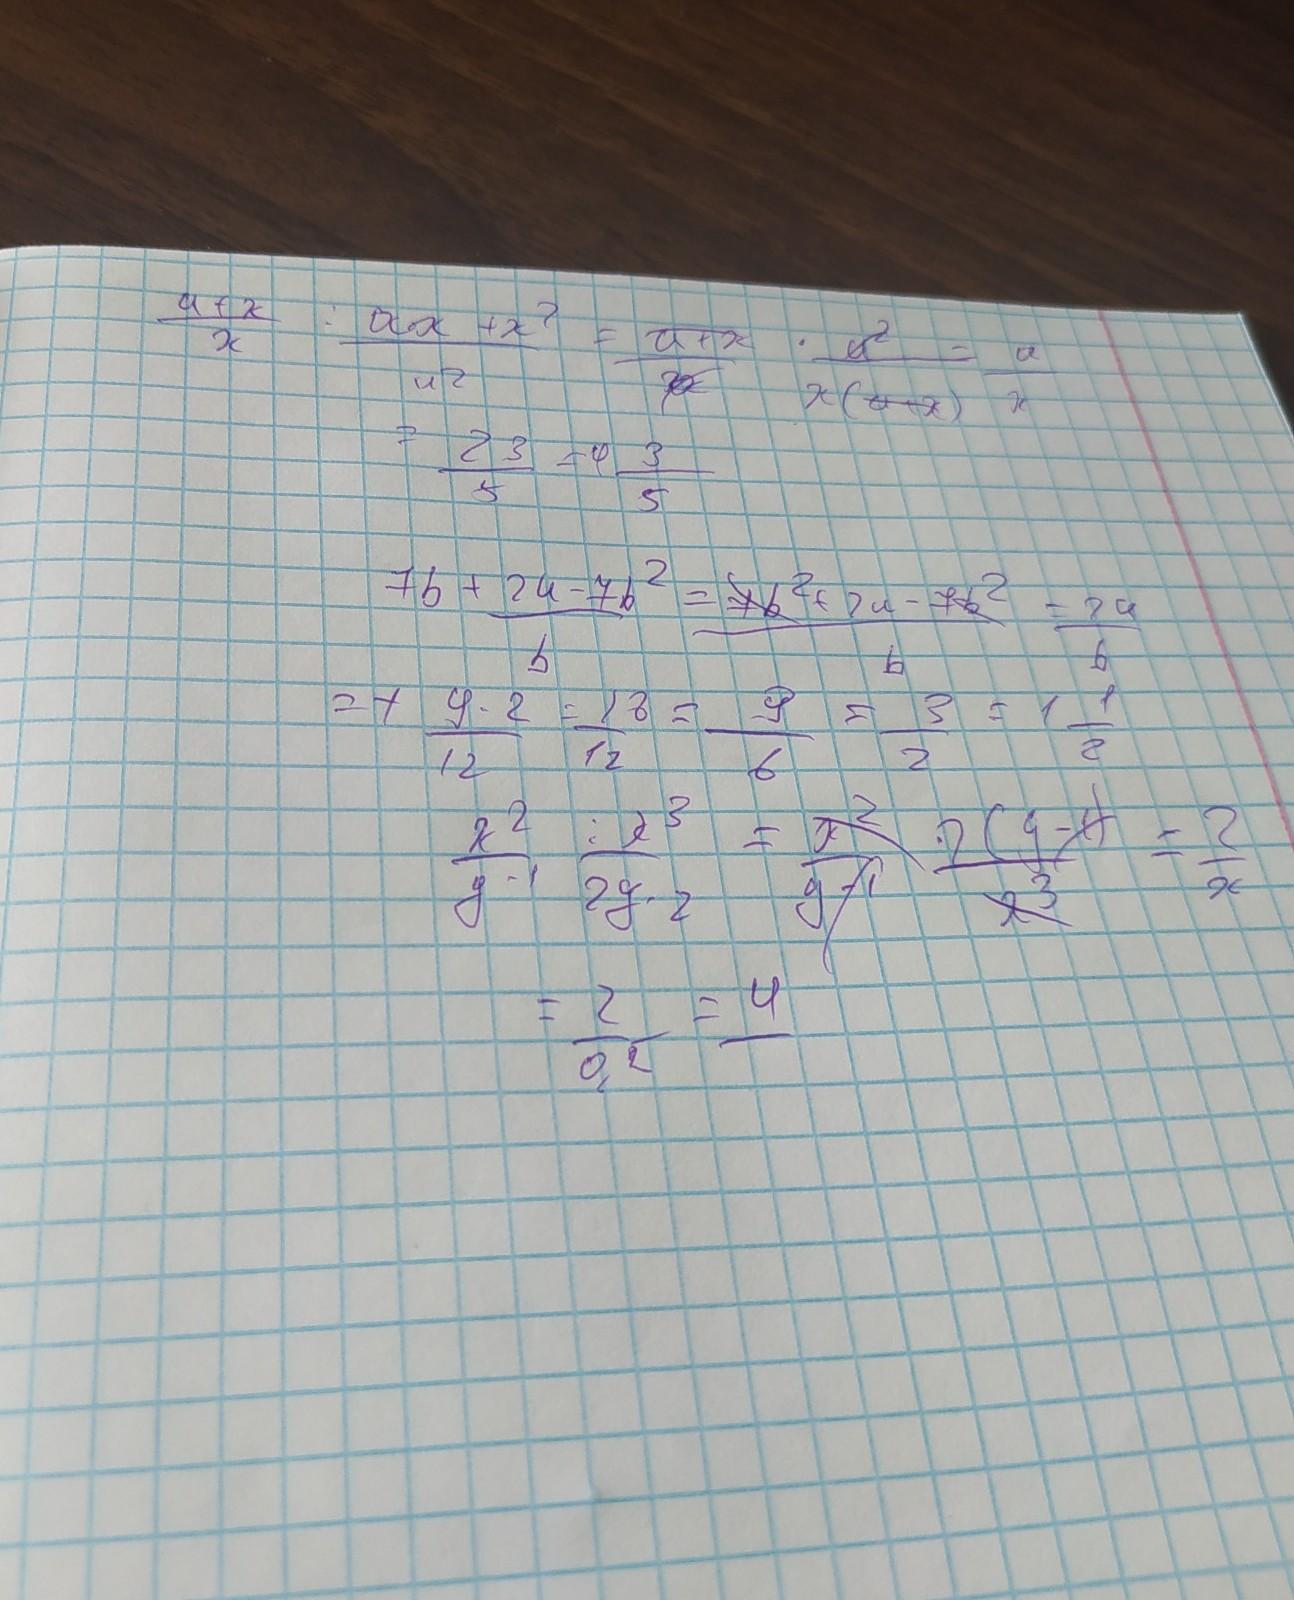 (a+x)/x : (ax+x²)/a² = (a+x)/x · a²/(x(a+x)) = a/x
= 23/5 = 4 3/5
7b + (2a-7b²)/b = (7b²+2a-7b²)/b = 2a/b
= + (9·2)/12 = 18/12 = 9/6 = 3/2 = 1 1/2
x²/(y-1) : x³/(2y-2) = x²/(y-1) · 2(y-1)/x³ = 2/x
= 2/0,2 = 4